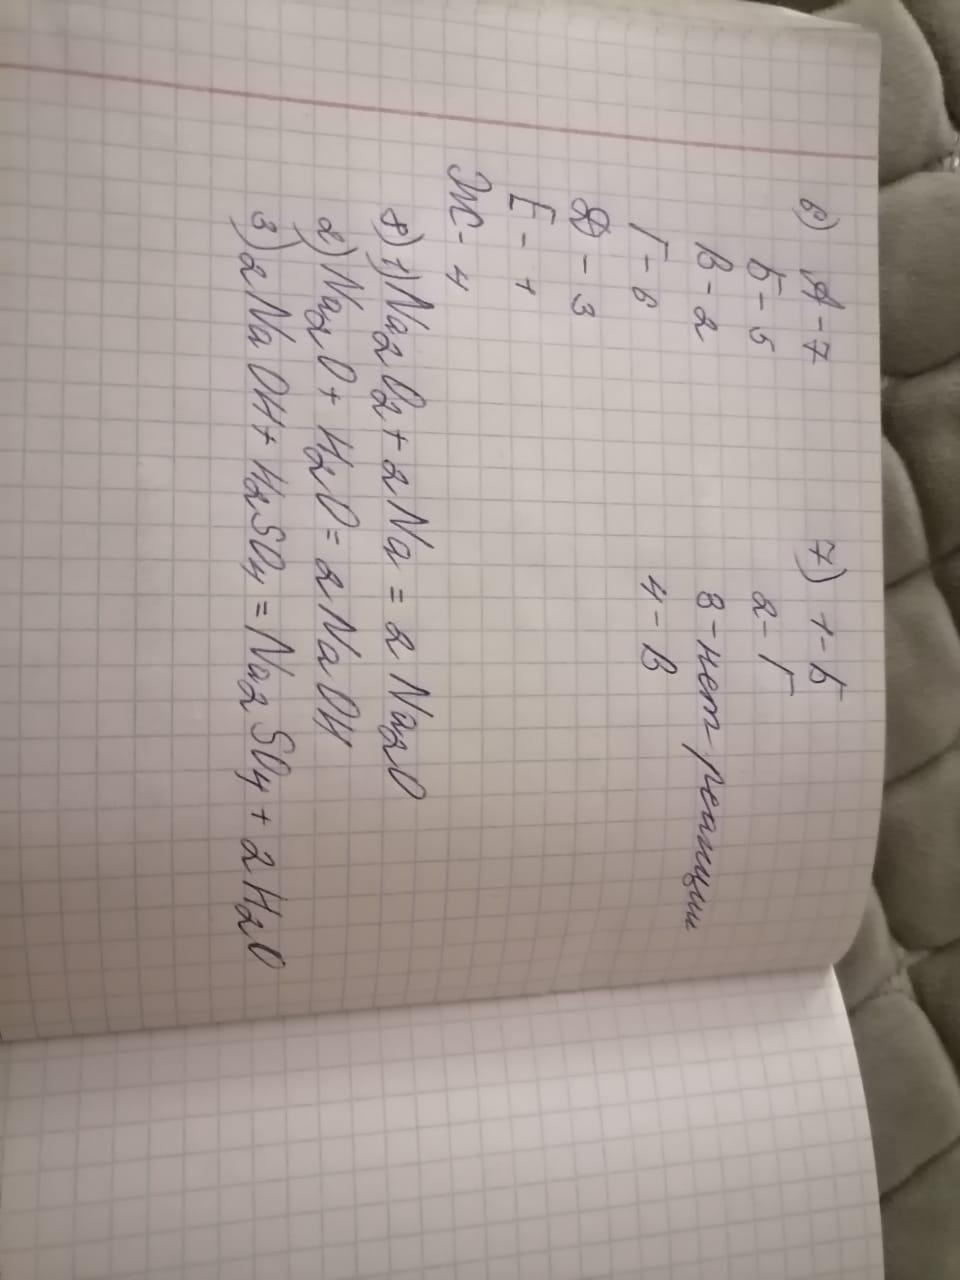 6) А - 7
Б - 5
В - 2
Г - 6
Д - 3
Е - 1
Ж - 4
7) 1 - Б
2 - Г
3 - нет реакции
4 - В
8) 1) Na2O2 + 2Na = 2Na2O
2) Na2O + H2O = 2NaOH
3) 2NaOH + H2SO4 = Na2SO4 + 2H2O